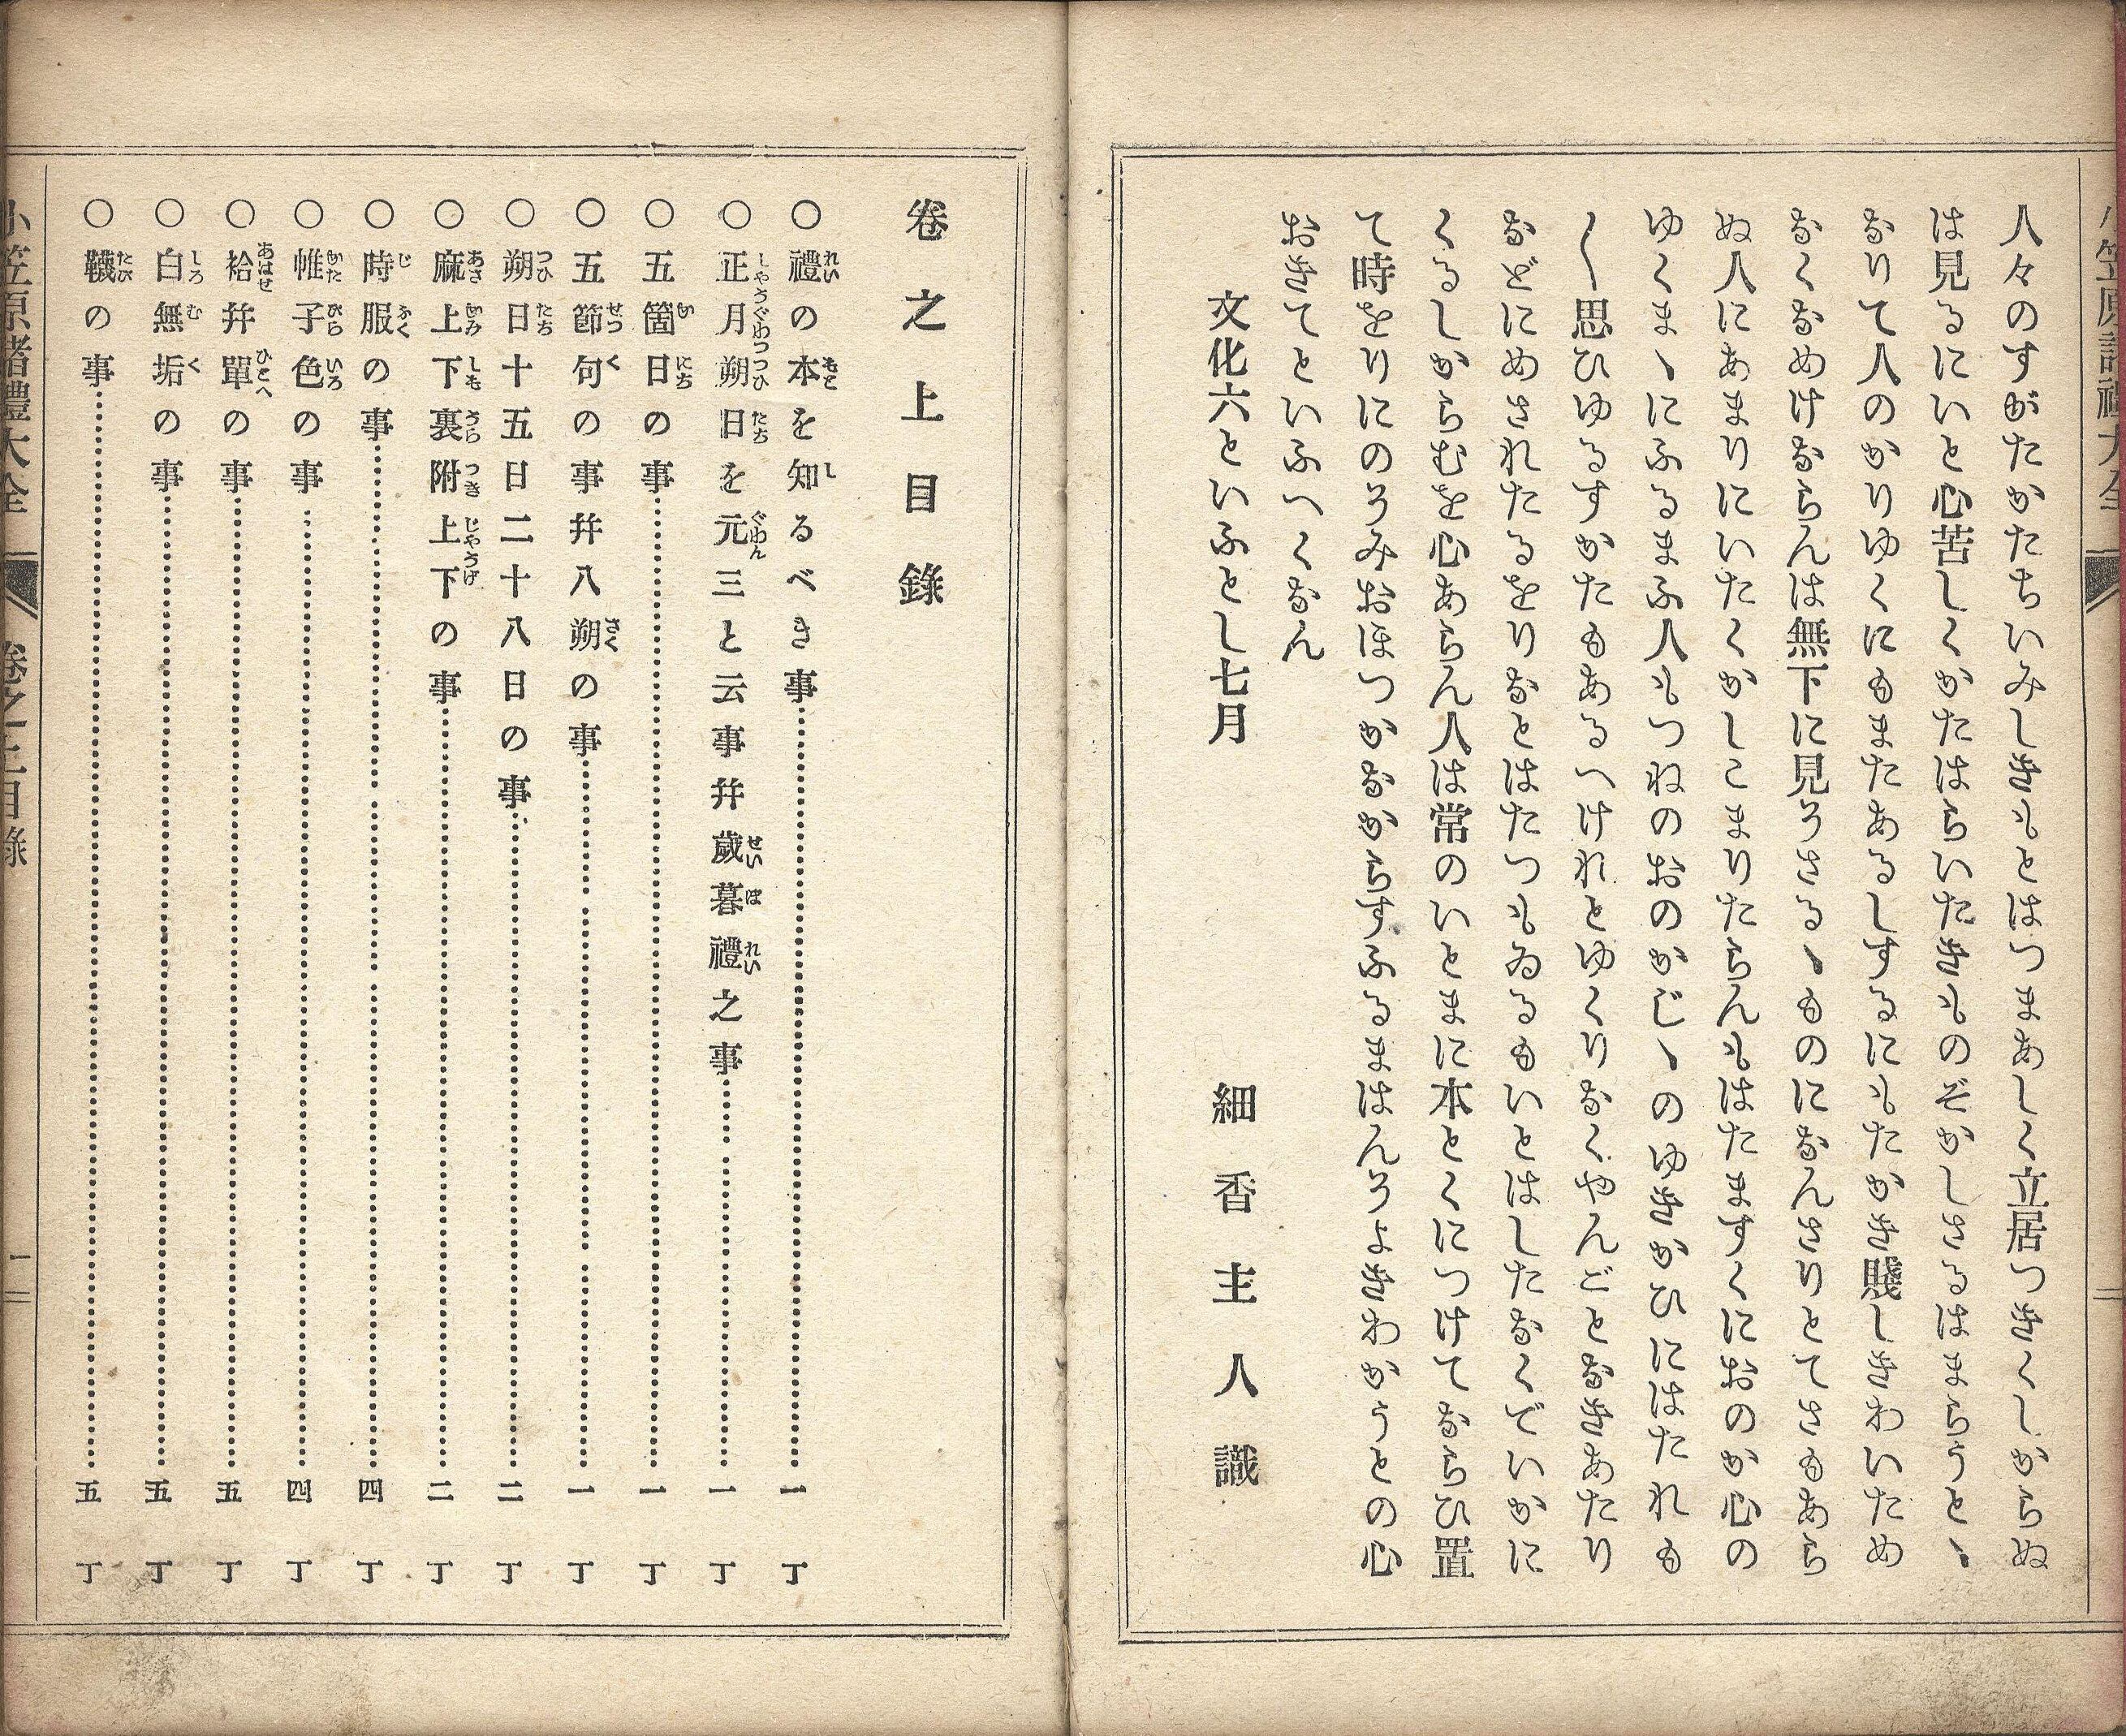 人々のすがたかたちいみしきもとはつまあしく立居つきくしからぬ
は見るにいと心苦しくかたはらいたきものぞかしさるはまらうとゝ
なりて人のかりゆくにもまたあるしするにもたかき賤しきわいため
なくなめけならんは無下に見うさるゝものになんさりとてさもあら
ぬ人にあまりにいたくかしこまりたらんもはたますくにおのか心の
ゆくまゝにふるまふ人もつねのおのかじゝのゆきかひにはたれも
〱思ひゆるすかたもあるへけれとゆくりなくやんごとなきあたり
などにめされたるをりなとはたつもゐるもいとはしたなくていかに
くるしからむを心あらん人は常のいとまに本とくにつけてならひ置
て時をりにのうみおほつかなからすふるまはんうよきわかうとの心
おきてといふへくなん
文化六といふとし七月
細香主人識
卷之上目錄
○禮の本を知るべき事…一丁
○正月朔日を元三と云事幷歲暮禮之事…一丁
○五箇日の事…一丁
○五節句の事幷八朔の事…一丁
○朔日十五日二十八日の事…二丁
○麻上下裏附上下の事…二丁
○時服の事…四丁
○帷子色の事…四丁
○袷幷單の事…五丁
○白無垢の事…五丁
○韈の事…五丁
小笠原諸禮大全 卷之上目錄 一